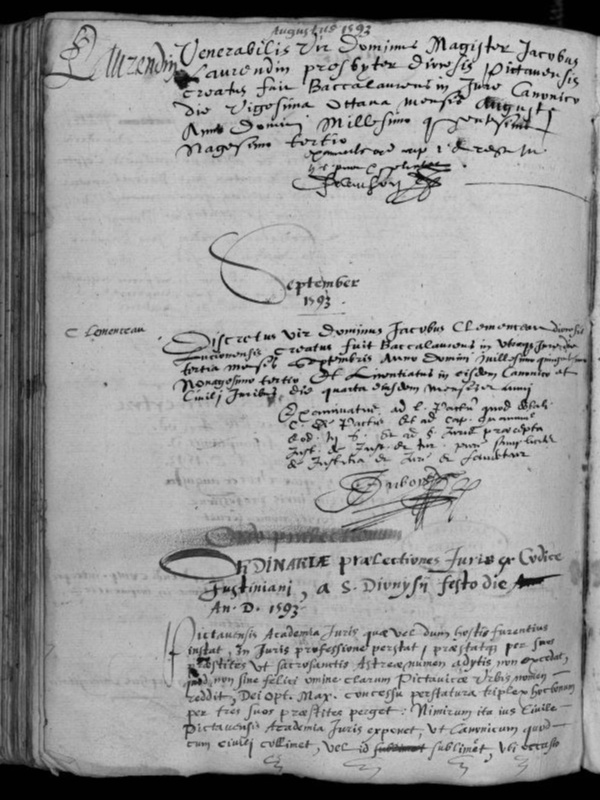 Augustus 1593
Laurendin
Venerabilis Vir Dominus Magister Jacobus
Laurendin presbyter diocesis Pictavensis
creatus fuit Baccalaureus in Jure Canonico
die Vigesima Octava mensis Augusti
Anno Domini Millesimo quingentesimo
Nagesimo tertio
September
1593
Clemenceau
Discretus vir dominus Jacobus Clemenceau diocesis
Lucionensis creatus fuit Baccalaureus in Utroque Jure die
tertia mensis Septembris Anno Domini Millesimo quingentesimo
Nonagesimo tertio Et Licentiatus in eisdem Canonico et
Civili Juribus die quarta eiusdem mensis et anni
Examinatus ad l. Pactum quod
C. de Pactis et ad cap.
et ad §. Juris præcepta
Inst. de Just. et Jur.
de Justitia et Jure
Dubois
ORDINARIÆ prælectiones Juris ex Codice
Justiniani, a S. Dionysij festo die
An. D. 1593
Pictavensis Academia Juris quæ vel dum hostis furentius
instat, in Juris professione perstat, præstatque per suos
Antistites ut sacrosanctis Astreæ numen adytis non excedat,
quod non sine felici omine clarum Pictavicæ Urbis nomen
reddit, Dei Opt. Max. concessu perstatura triplex
per tres suos præstites perget: Nimirum ita ius Civile
Pictavensis Academia Juris exponet, ut Canonicum quod
cum civili collimet, vel id sublimet, ubi occasio